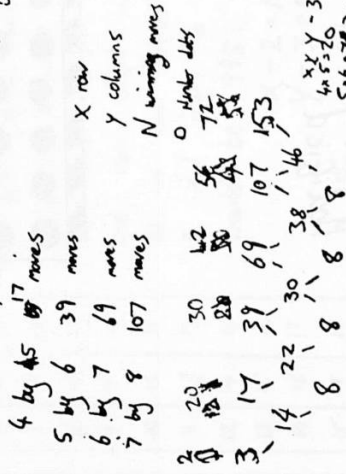 4 by 5 17 moves
5 by 6 39 moves
6 by 7 69 moves
7 by 8 107 moves
X row
Y columns
N winning moves
O Number dots
2 20 30 42 56 72
3 17 39 69 107 153
14 22 30 38 46
8 8 8 8
x x y - 3
4 x 5 = 20